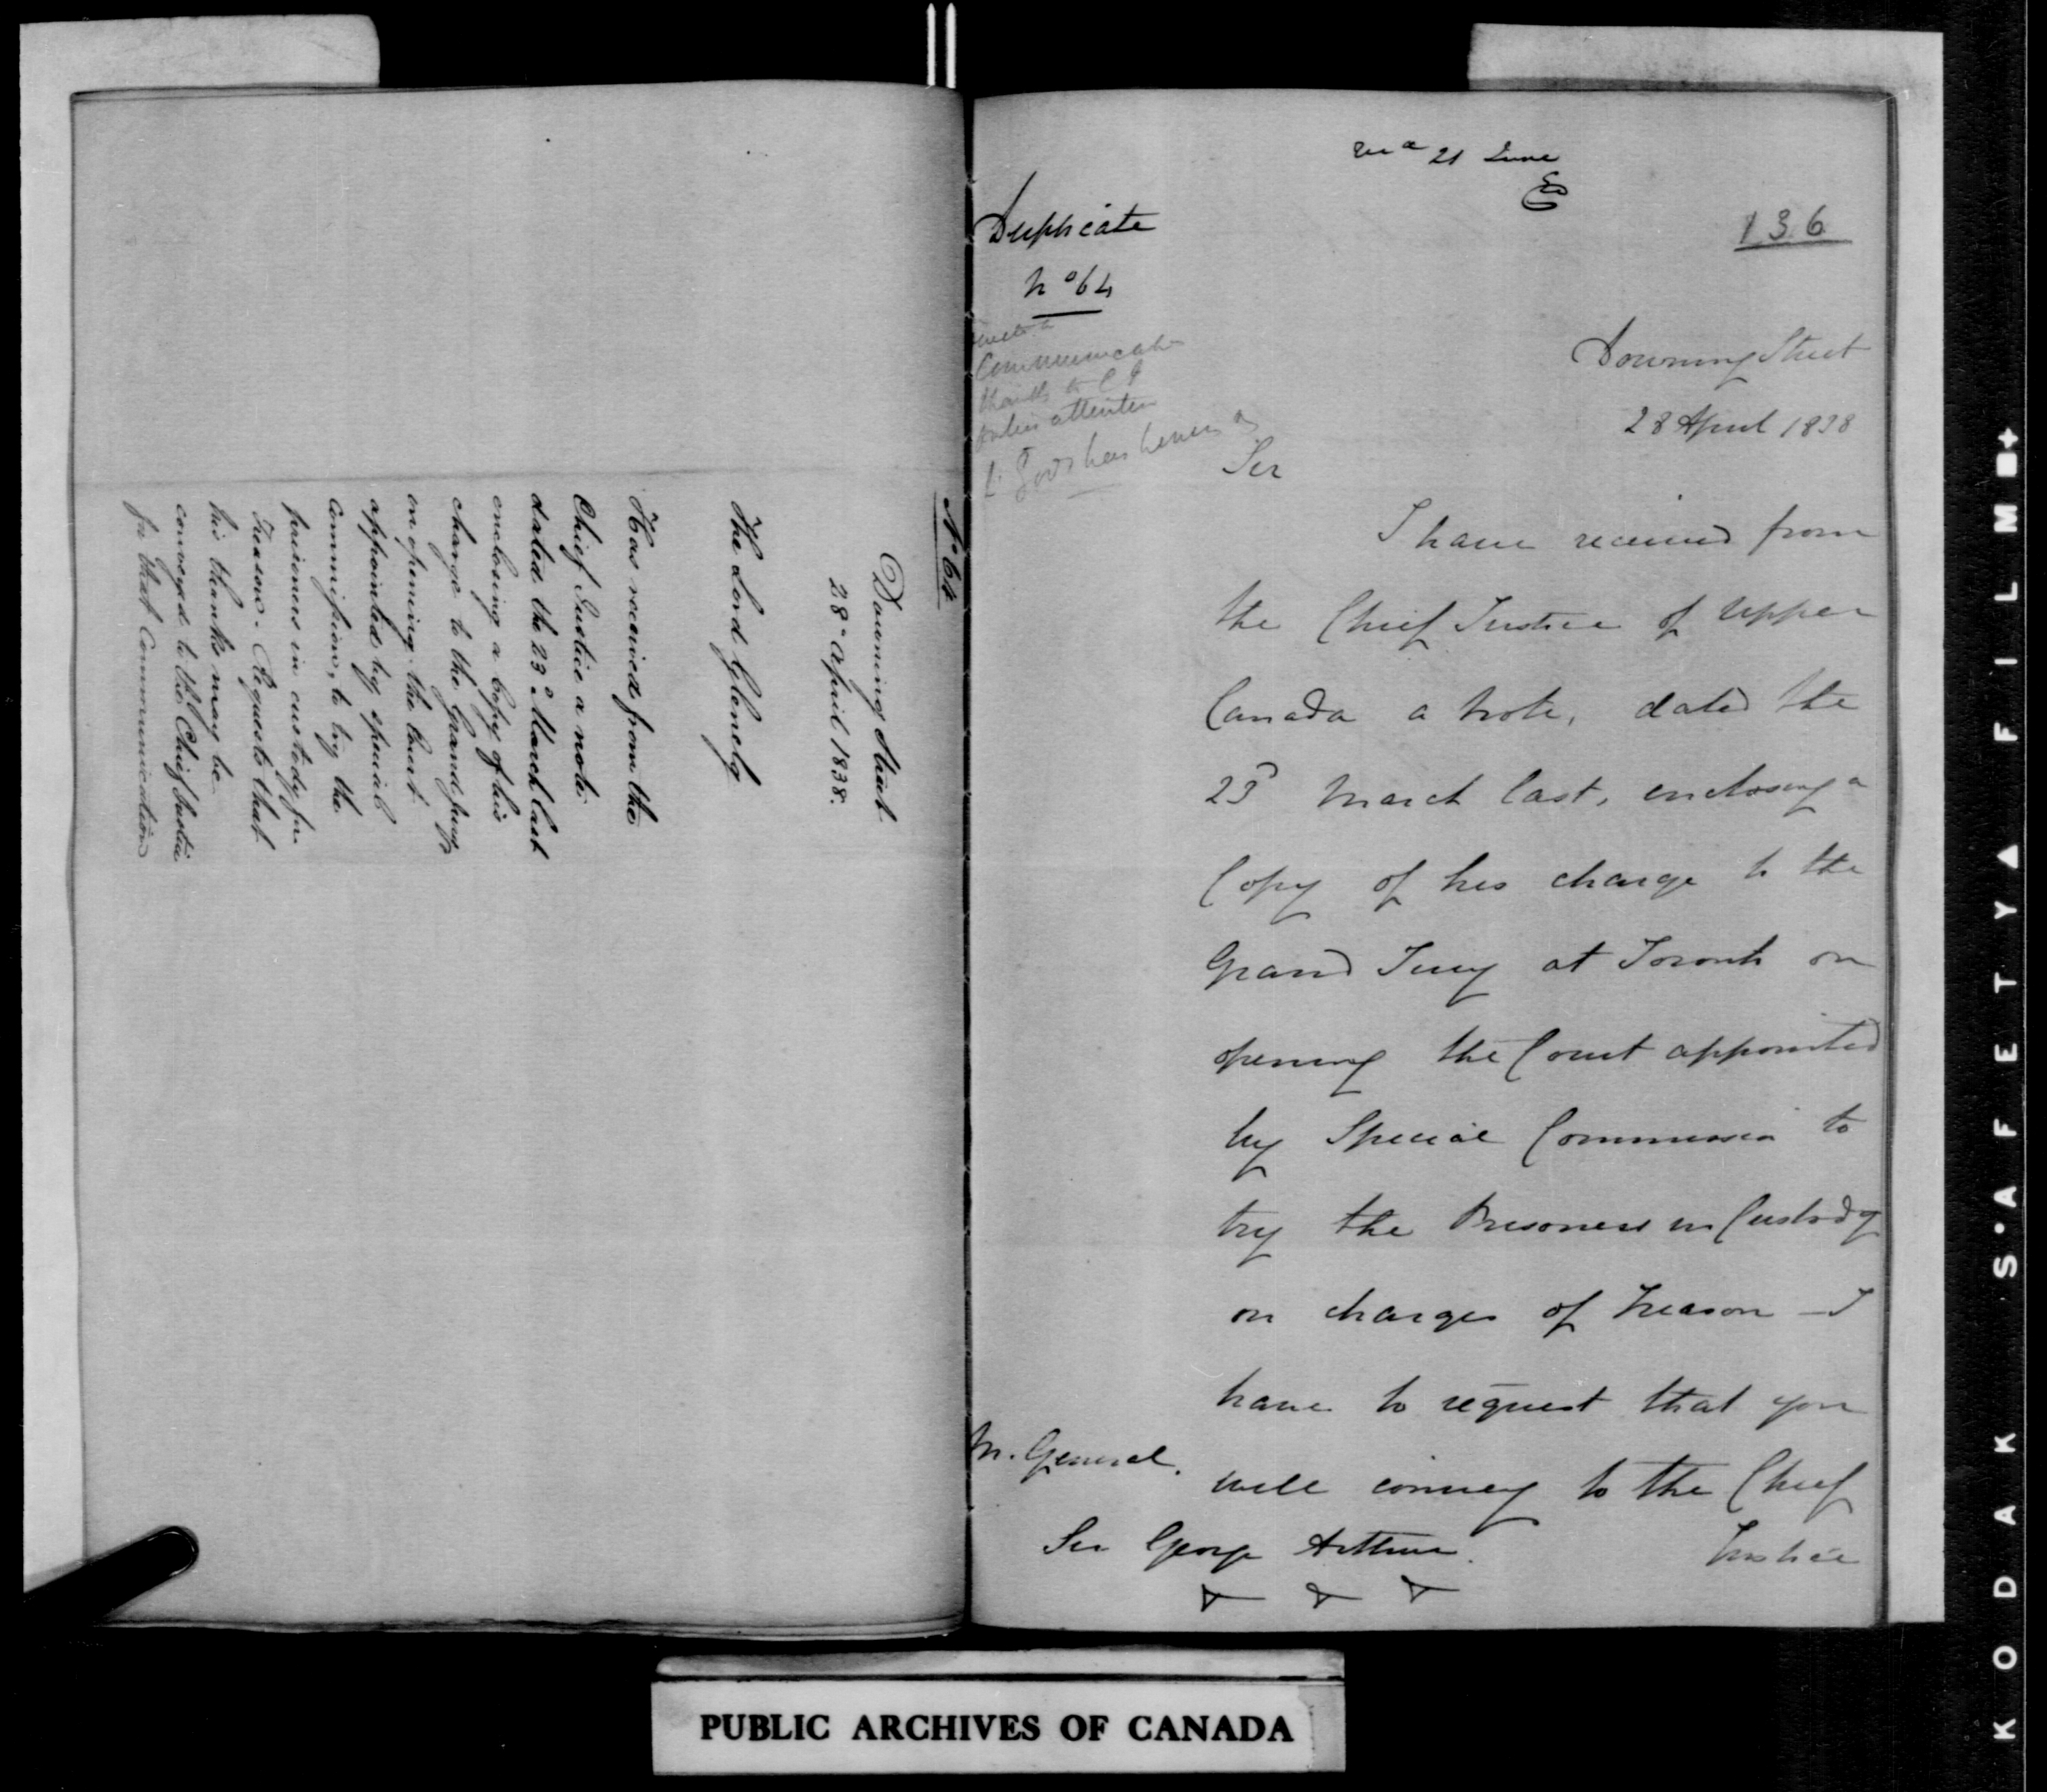 No 64
Downing Street
28th April 1838.
The Lord Glenelg
Has received from the
Chief Justice a note
dated the 23d March last
enclosing a Copy of his
charge to the Grand Jury
on opening the Court
appointed by special
Commission, to try the
prisoners in custody for
Treason. Requests that
his thanks may be
conveyed to the Chief Justice
for that Communication
21 June
136
Duplicate
No 64
Communicate
thanks to C J
for his attention
Downing Street
28 April 1838
Sir
I have received from
the Chief Justice of Upper
Canada a Note, dated the
23d March last, enclosing a
Copy of his charge to the
Grand Jury at Toronto on
opening the Court appointed
by Special Commission to
try the Prisoners in Custody
on charges of Treason – I
have to request that you
will convey to the Chief
Justice
M. General.
Sir George Arthur.
PUBLIC ARCHIVES OF CANADA
KODAK S'AFETY▲ FILM